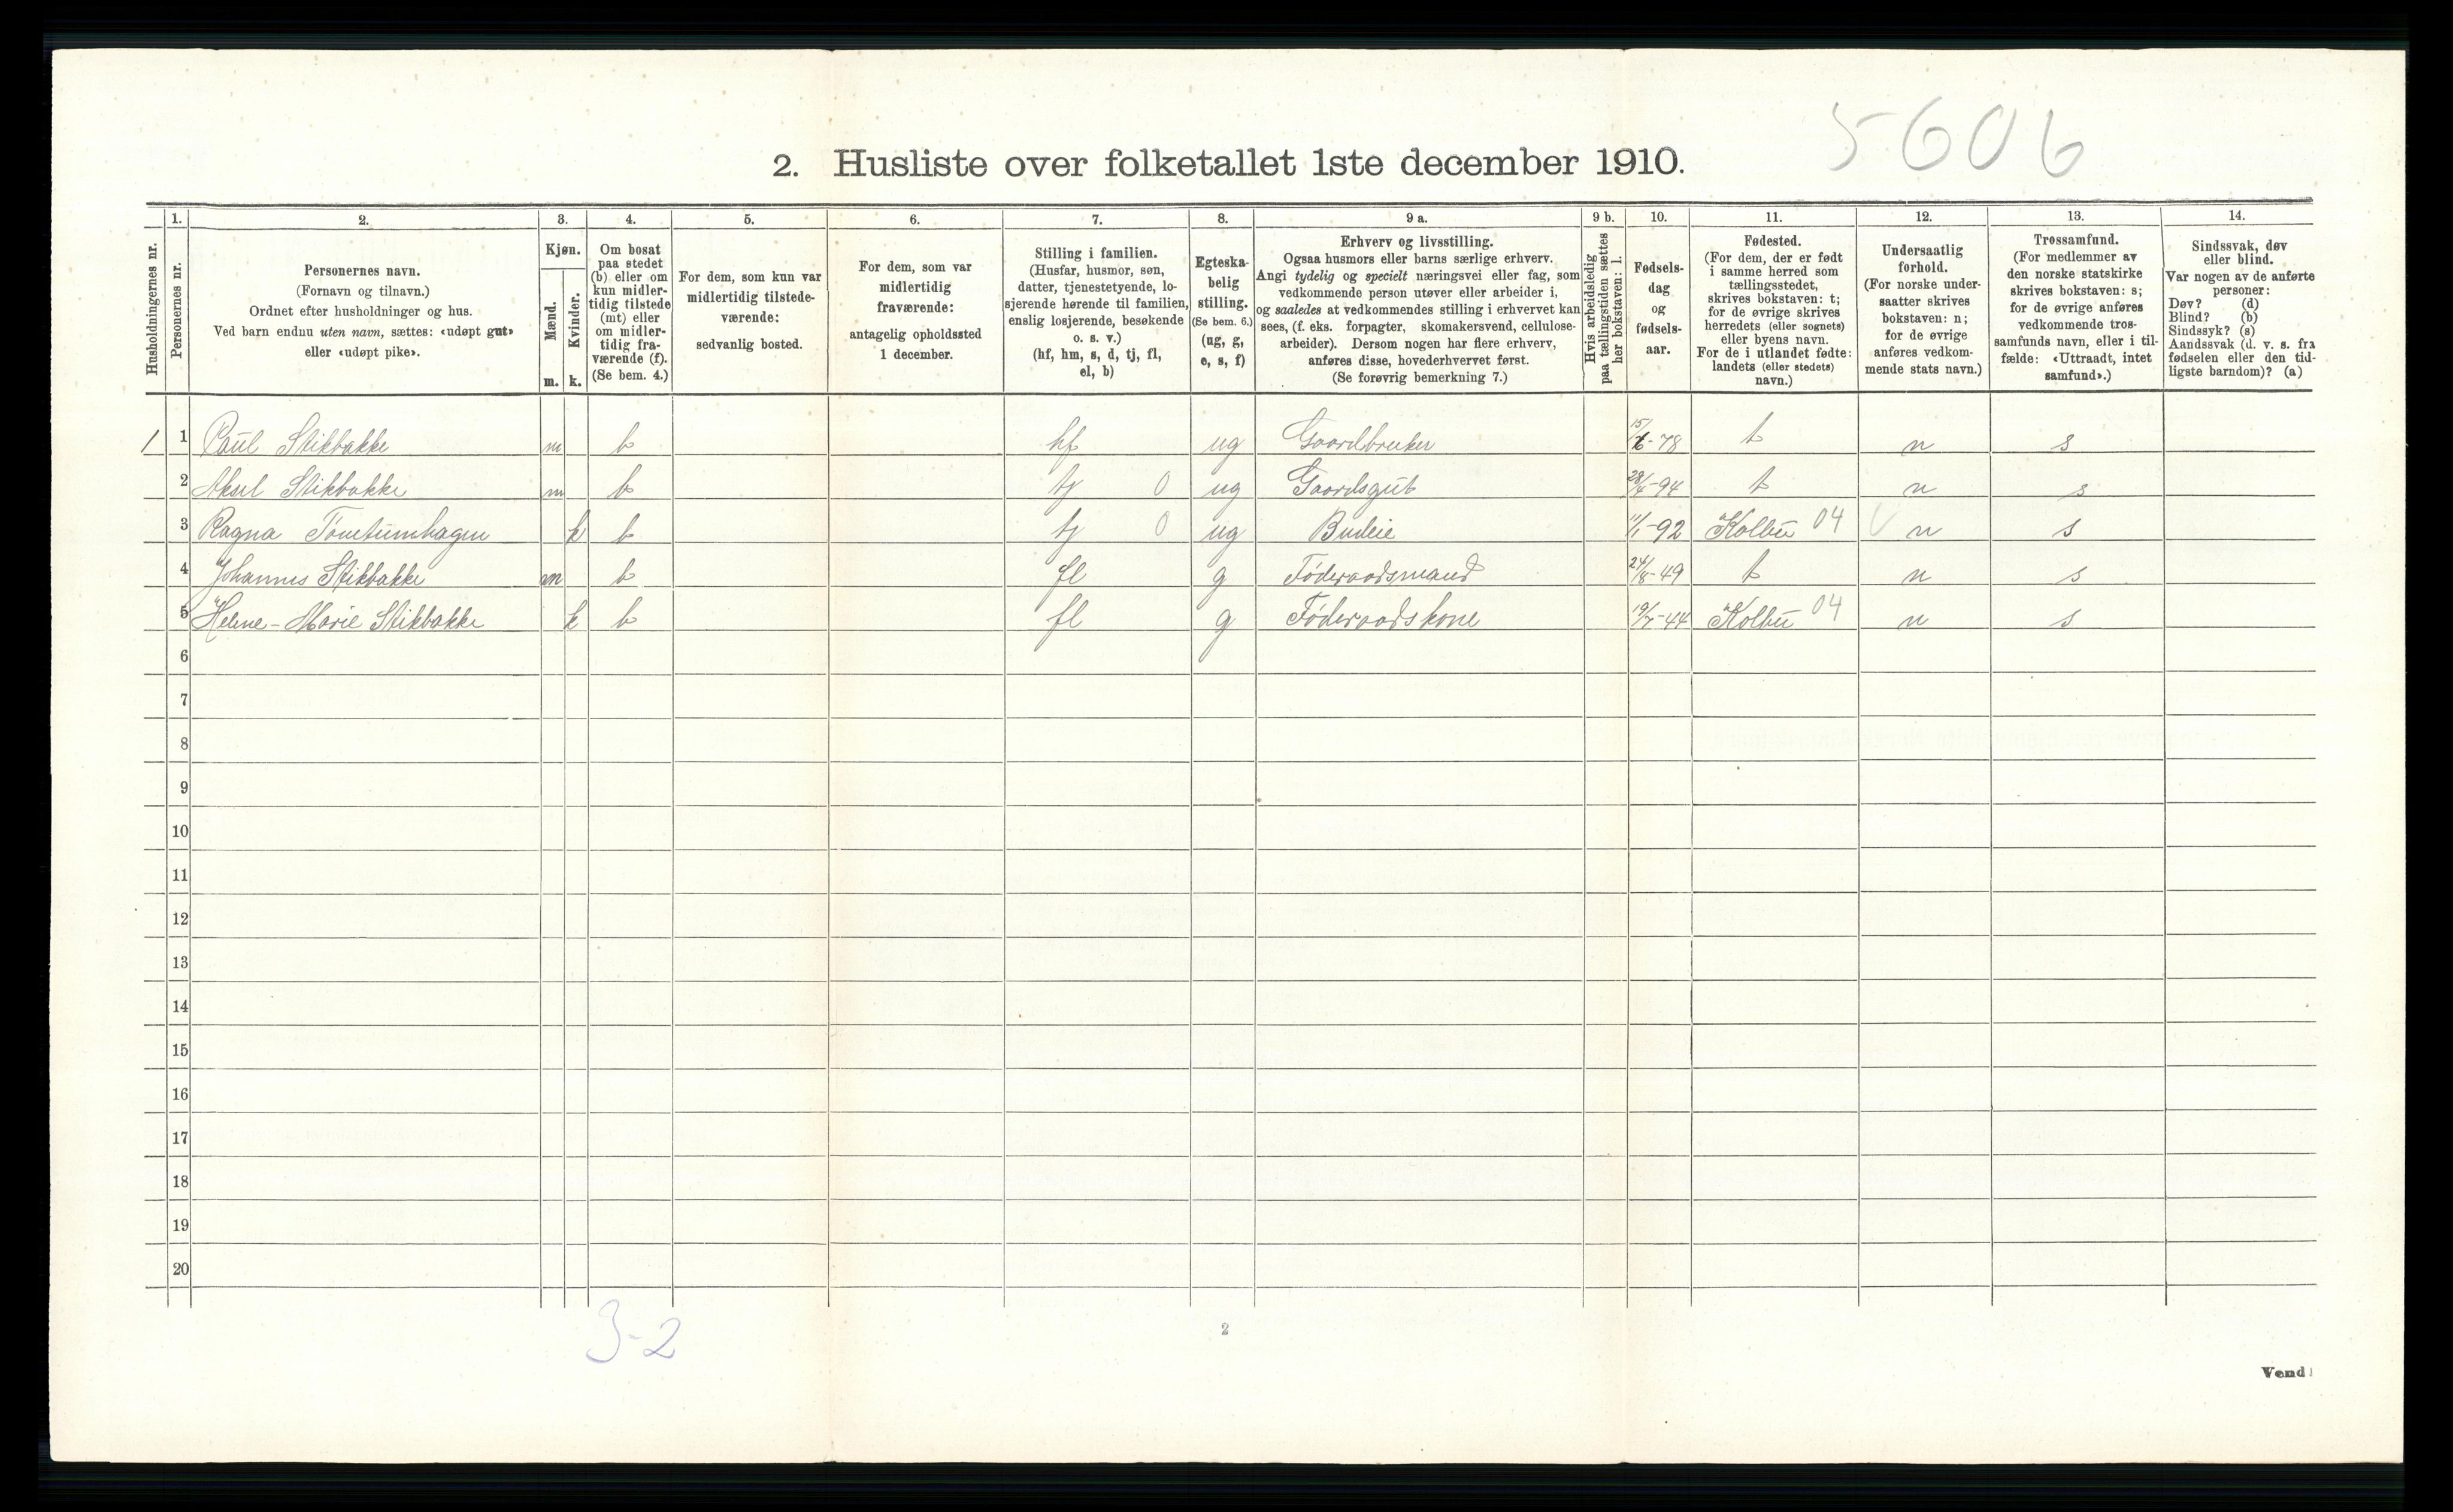 5606
2. Husliste over folketallet 1ste december 1910.
Husholdningernes nr.
1.
Personernes nr.
2.
Personernes navn.
(Fornavn og tilnavn.)
Ordnet efter husholdninger og hus.
Ved barn endnu uten navn, sættes: «udøpt gut»
eller «udøpt pike».
3.
Kjøn.
Mænd.
Kvinder.
m. k.
4.
Om bosat
paa stedet
(b) eller om
kun midler-
tidig tilstede
(mt) eller
om midler-
tidig fra-
værende (f).
(Se bem. 4.)
5.
For dem, som kun var
midlertidig tilstede-
værende:
sedvanlig bosted.
6.
For dem, som var
midlertidig
fraværende:
antagelig opholdssted
1 december.
7.
Stilling i familien.
(Husfar, husmor, søn,
datter, tjenestetyende, lo-
sjerende hørende til familien,
enslig losjerende, besøkende
o. s. v.)
(hf, hm, s, d, tj, fl,
el, b)
8.
Egteska-
belig
stilling.
(Se bem. 6.)
(ug, g,
e, s, f)
9 a.
Erhverv og livsstilling.
Ogsaa husmors eller barns særlige erhverv.
Angi tydelig og specielt næringsvei eller fag, som
vedkommende person utøver eller arbeider i,
og saaledes at vedkommendes stilling i erhvervet kan
sees, (f. eks. forpagter, skomakersvend, cellulose-
arbeider). Dersom nogen har flere erhverv,
anføres disse, hovederhvervet først.
(Se forøvrig bemerkning 7.)
9 b.
Hvis arbeidsledig
paa tællingstiden sættes
her bokstaven: l.
10.
Fødsels-
dag
og
fødsels-
aar.
11.
Fødested.
(For dem, der er født
i samme herred som
tællingsstedet,
skrives bokstaven: t;
for de øvrige skrives
herredets (eller sognets)
eller byens navn.
For de i utlandet fødte:
landets (eller stedets)
navn.)
12.
Undersaatlig
forhold.
(For norske under-
saatter skrives
bokstaven: n;
for de øvrige
anføres vedkom-
mende stats navn.)
13.
Trossamfund.
(For medlemmer av
den norske statskirke
skrives bokstaven: s;
for de øvrige anføres
vedkommende tros-
samfunds navn, eller i til-
fælde: «Uttraadt, intet
samfund».)
14.
Sindssvak, døv
eller blind.
Var nogen av de anførte
personer:
Døv? (d)
Blind? (b)
Sindssyk? (s)
Aandssvak (d. v. s. fra
fødselen eller den tid-
ligste barndom)? (a)
1 1 Paul Stikbakke m b hf ug Gaardbruker 15/6-78 t n s
2 Aksel Stikbakke m b tj 0 ug Gaardsgut 28/4-94 t n s
3 Ragna Tømtumhagen k b tj 0 ug Budeie 11/1-92 Kolbu 04 n s
4 Johannes Stikbakke m b fl g Føderaadsmand 24/8-49 t n s
5 Helene-Marie Stikbakke k b fl g Føderaadskone 19/7-44 Kolbu 04 n s
6
7
8
9
10
11
12
13
14
15
16
17
18
19
20
3-2
2
Vend